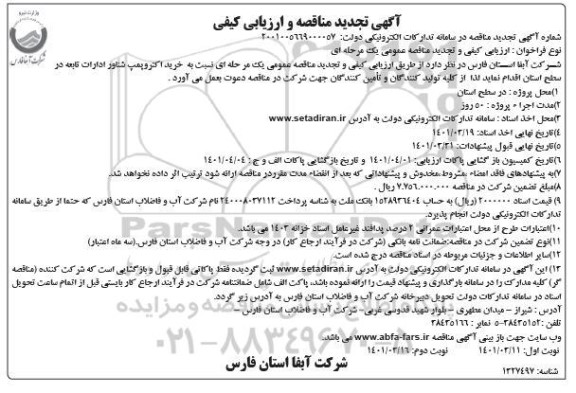 وزارت نیرو
آگهی تجدید مناقصه و ارزیابی کیفی
شرکت آبفا فارس
شماره آگهی تجدید مناقصه در سامانه تدارکات الکترونیکی دولت: ۲۰۰۱۰۰۵۶۶۹۰۰۰۰۵۷
نوع فراخوان : ارزیابی کیفی و تجدید مناقصه عمومی یک مرحله ای
شرکت آبفا استان فارس در نظر دارد از طریق ارزیابی کیفی و تجدید مناقصه عمومی یک مرحله ای نسبت به خرید الکتروپمپ شناور ادارات تابعه در
سطح استان اقدام نماید لذا از کلیه تولید کنندگان و تأمین کنندگان جهت شرکت در مناقصه دعوت بعمل می آورد .
۱)محل پروژه : در سطح استان
۲)مدت اجراء پروژه : ۵۰ روز
۳)محل اخذ اسناد : سامانه تدارکات الکترونیکی دولت به آدرس www.setadiran.ir
۴)تاریخ نهایی اخذ اسناد: ۱۴۰۱/۰۳/۱۹
۵)تاریخ نهایی قبول پیشنهادات: ۱۴۰۱/۰۳/۳۱
۶)تاریخ کمیسیون باز گشایی پاکات ارزیابی: ۱۴۰۱/۰۴/۰۱ و تاریخ بازگشایی پاکات الف و ج : ۱۴۰۱/۰۴/۰۴
۷)به پیشنهادهای فاقد امضاء ،مشروط،مخدوش و پیشنهاداتی که بعد از انقضاء مدت مقرردر مناقصه ارائه شود ترتیب اثر داده نخواهد شد.
۸)مبلغ تضمین شرکت در مناقصه ۷.۷۵۶.۰۰۰.۰۰۰ ریال .
۹) قیمت اسناد ۲۰۰۰۰۰۰ (ریال) به حساب ۱۵۲۸۹۳۶۴۰۴ بانک ملت به شناسه پرداخت ۲۴۰۰۰۸۰۳۷۱۱۲ نام شرکت آب و فاضلاب استان فارس که حتما از طریق سامانه
تدارکات الکترونیکی دولت انجام پذیرد.
۱۰)اعتبارات طرح از محل اعتبارات عمرانی ۲ درصد پدافند غیرعامل اسناد خزانه ۱۴۰۳ می باشد.
۱۱)نوع تضمین شرکت در مناقصه:ضمانت نامه بانکی (شرکت در فرآیند ارجاع کار) در وجه شرکت آب و فاضلاب استان فارس.(سه ماه اعتبار)
۱۲)سایر اطلاعات و جزئیات مربوطه در اسناد مناقصه درج شده است.
۱۳) این آگهی در سامانه تدارکات الکترونیکی دولت به آدرس www.setadiran.ir ثبت گردیده فقط پاکاتی قابل قبول و بازگشایی است که شرکت کننده (مناقصه
گر) کلیه مدارک را در سامانه بارگذاری و پیشنهاد قیمت را ارائه نموده باشد، پاکت الف شامل ضمانتنامه شرکت در فرآیند ارجاع کار بایستی قبل از اتمام ساعت تحویل
اسناد در سامانه تدارکات دولت تحویل دبیرخانه شرکت آب و فاضلاب استان فارس به آدرس زیر گردد.
آدرس : شیراز – میدان مطهری – بلوار شهید قدوسی غربی- شرکت آب و فاضلاب استان فارس –
تلفن: ۵-۳۸۴۳۵۱۵۲ نمابر : ۳۸۴۳۵۱۶۶
وب سایت جهت باز بینی آگهی مناقصه www.abfa-fars.ir می باشد.
نوبت اول: ۱۴۰۱/۰۳/۱۱ نوبت دوم: ۱۴۰۱/۰۳/۱۶
شرکت آبفا استان فارس
شناسه: ۱۳۲۷۴۹۷
۰۲۱-۸۸۳۴۹۶۷۰-۵